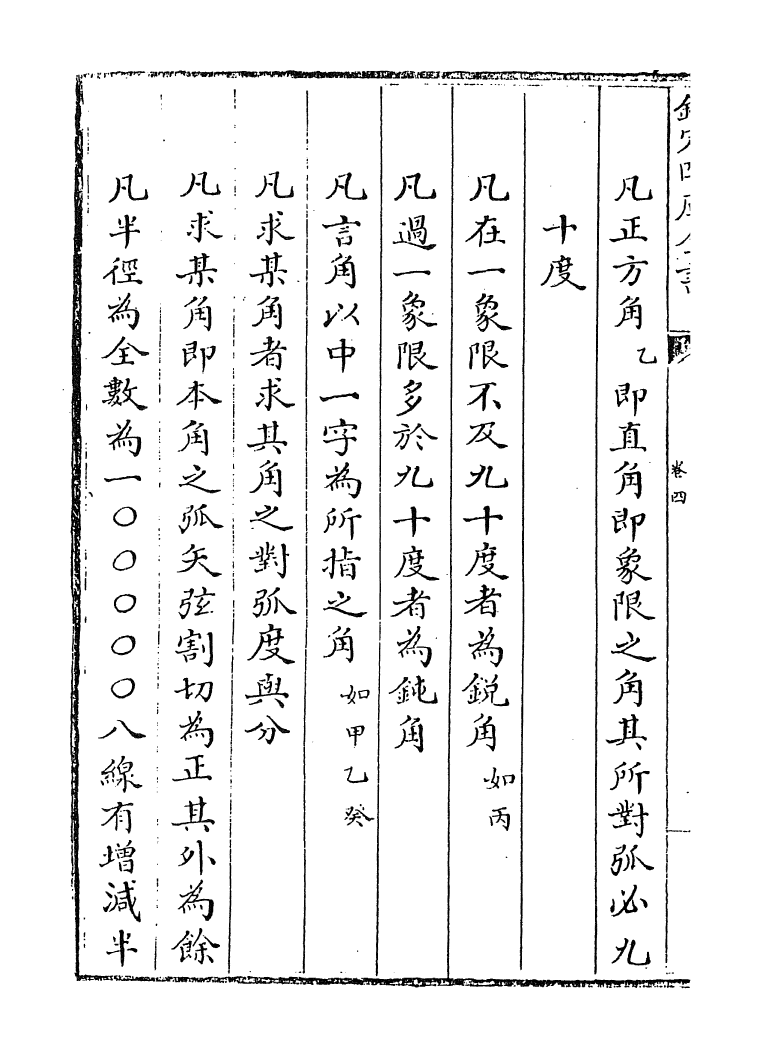 凡正方角乙即直角即象限之角其所對弧必九
十度
凡在一象限不及九十度者為銳角如丙
凡過一象限多於九十度者為鈍角
凡言角以中一字為所指之角如甲乙癸
凡求某角者求其角之對弧度與分
凡求某角即本角之弧矢弦割切為正其外為餘
凡半徑為全數為一〇〇〇〇〇八線有增減半
卷四